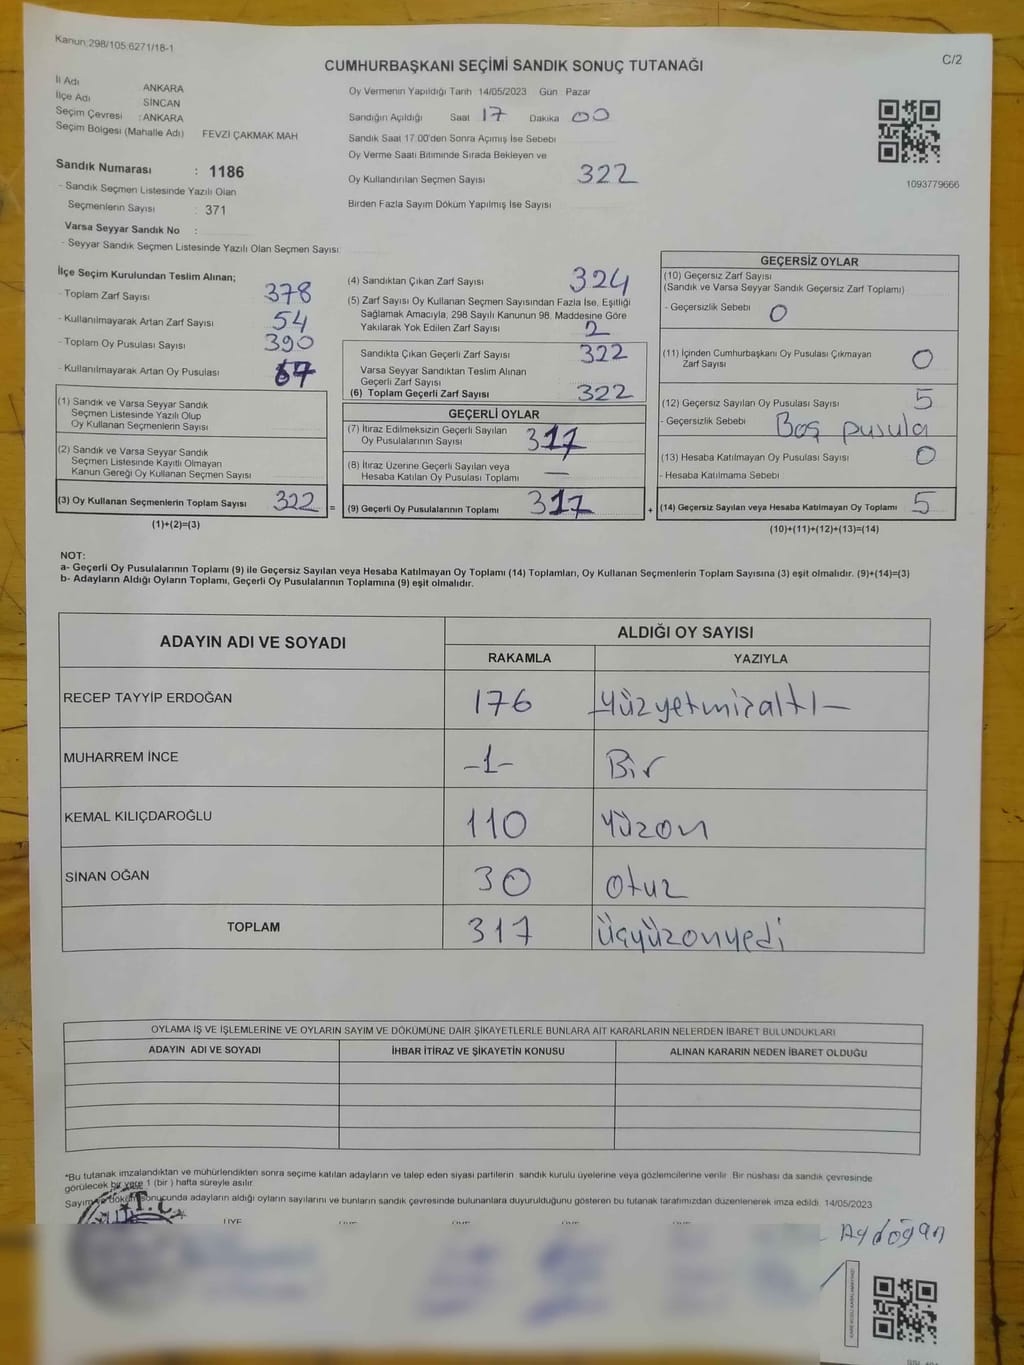 Kanun:298/105.6271/18-1
C/2
CUMHURBAŞKANI SEÇİMİ SANDIK SONUÇ TUTANAĞI
İl Adı ANKARA
İlçe Adı SİNCAN
Seçim Çevresi : ANKARA
Seçim Bölgesi (Mahalle Adı) FEVZİ ÇAKMAK MAH
Sandık Numarası : 1186
- Sandık Seçmen Listesinde Yazılı Olan
Seçmenlerin Sayısı : 371
Varsa Seyyar Sandık No :
- Seyyar Sandık Seçmen Listesinde Yazılı Olan Seçmen Sayısı:
Oy Vermenin Yapıldığı Tarih 14/05/2023 Gün Pazar
Sandığın Açıldığı Saat 17 Dakika 00
Sandık Saat 17:00'den Sonra Açımış İse Sebebi
Oy Verme Saati Bitiminde Sırada Bekleyen ve
Oy Kullandırılan Seçmen Sayısı 322
Birden Fazla Sayım Döküm Yapılmış İse Sayısı
1093779666
İlçe Seçim Kurulundan Teslim Alınan;
- Toplam Zarf Sayısı 378
- Kullanılmayarak Artan Zarf Sayısı 54
- Toplam Oy Pusulası Sayısı 390
- Kullanılmayarak Artan Oy Pusulası 67
(1) Sandık ve Varsa Seyyar Sandık
Seçmen Listesinde Yazılı Olup
Oy Kullanan Seçmenlerin Sayısı
(2) Sandık ve Varsa Seyyar Sandık
Seçmen Listesinde Kayıtlı Olmayan
Kanun Gereği Oy Kullanan Seçmen Sayısı
(3) Oy Kullanan Seçmenlerin Toplam Sayısı 322 =
(1)+(2)=(3)
(4) Sandıktan Çıkan Zarf Sayısı 324
(5) Zarf Sayısı Oy Kullanan Seçmen Sayısından Fazla İse, Eşitliği
Sağlamak Amacıyla, 298 Sayılı Kanunun 98. Maddesine Göre
Yakılarak Yok Edilen Zarf Sayısı 2
Sandıkta Çıkan Geçerli Zarf Sayısı 322
Varsa Seyyar Sandıktan Teslim Alınan
Geçerli Zarf Sayısı
(6) Toplam Geçerli Zarf Sayısı 322
GEÇERLİ OYLAR
(7) İtiraz Edilmeksizin Geçerli Sayılan
Oy Pusulalarının Sayısı 317
(8) İtiraz Üzerine Geçerli Sayılan veya
Hesaba Katılan Oy Pusulası Toplamı —
(9) Geçerli Oy Pusulalarının Toplamı 317 +
GEÇERSİZ OYLAR
(10) Geçersiz Zarf Sayısı
(Sandık ve Varsa Seyyar Sandık Geçersiz Zarf Toplamı)
- Geçersizlik Sebebi 0
(11) İçinden Cumhurbaşkanı Oy Pusulası Çıkmayan
Zarf Sayısı 0
(12) Geçersiz Sayılan Oy Pusulası Sayısı 5
- Geçersizlik Sebebi Boş pusula
(13) Hesaba Katılmayan Oy Pusulası Sayısı 0
- Hesaba Katılmama Sebebi
(14) Geçersiz Sayılan veya Hesaba Katılmayan Oy Toplamı 5
(10)+(11)+(12)+(13)=(14)
NOT:
a- Geçerli Oy Pusulalarının Toplamı (9) ile Geçersiz Sayılan veya Hesaba Katılmayan Oy Toplamı (14) Toplamları, Oy Kullanan Seçmenlerin Toplam Sayısına (3) eşit olmalıdır. (9)+(14)=(3)
b- Adayların Aldığı Oyların Toplamı, Geçerli Oy Pusulalarının Toplamına (9) eşit olmalıdır.
ADAYIN ADI VE SOYADI ALDIĞI OY SAYISI
RAKAMLA YAZIYLA
RECEP TAYYİP ERDOĞAN 176 yüzyetmişaltı
MUHARREM İNCE -1- Bir
KEMAL KILIÇDAROĞLU 110 yüzon
SİNAN OĞAN 30 otuz
TOPLAM 317 üçyüzonyedi
OYLAMA İŞ VE İŞLEMLERİNE VE OYLARIN SAYIM VE DÖKÜMÜNE DAİR ŞİKAYETLERLE BUNLARA AİT KARARLARIN NELERDEN İBARET BULUNDUKLARI
ADAYIN ADI VE SOYADI İHBAR İTİRAZ VE ŞİKAYETİN KONUSU ALINAN KARARIN NEDEN İBARET OLDUĞU
*Bu tutanak imzalandıktan ve mühürlendikten sonra seçime katılan adayların ve talep eden siyasi partilerin sandık kurulu üyelerine veya gözlemcilerine verilir. Bir nüshası da sandık çevresinde
görülecek bir yere 1 (bir ) hafta süreyle asılır.
Sayım ve döküm sonucunda adayların aldığı oyların sayılarını ve bunların sandık çevresinde bulunanlara duyurulduğunu gösteren bu tutanak tarafımızdan düzenlenerek imza edildi. 14/05/2023
T.C.
Aydoğan